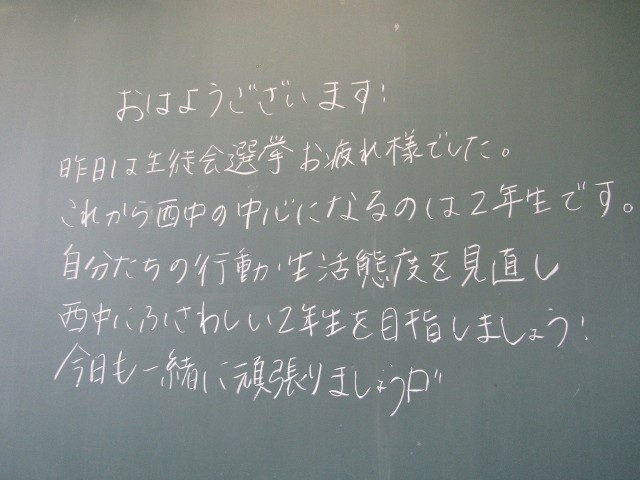 おはようございます!
昨日は生徒会選挙お疲れ様でした。
これから西中の中心になるのは2年生です。
自分たちの行動か生活態度を見直し
西中にふさわしい2年生を目指しましょう!
今日も一緒に頑張りましょう